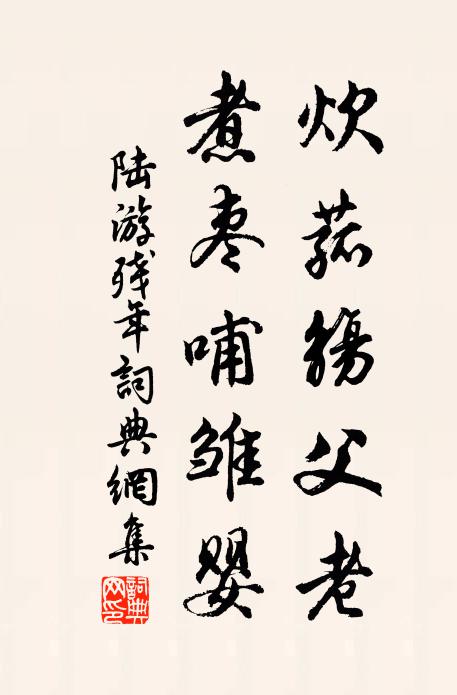 炊菰觴父老
煮枣哺雏婴
陆游残年詞典網集
詞典网印